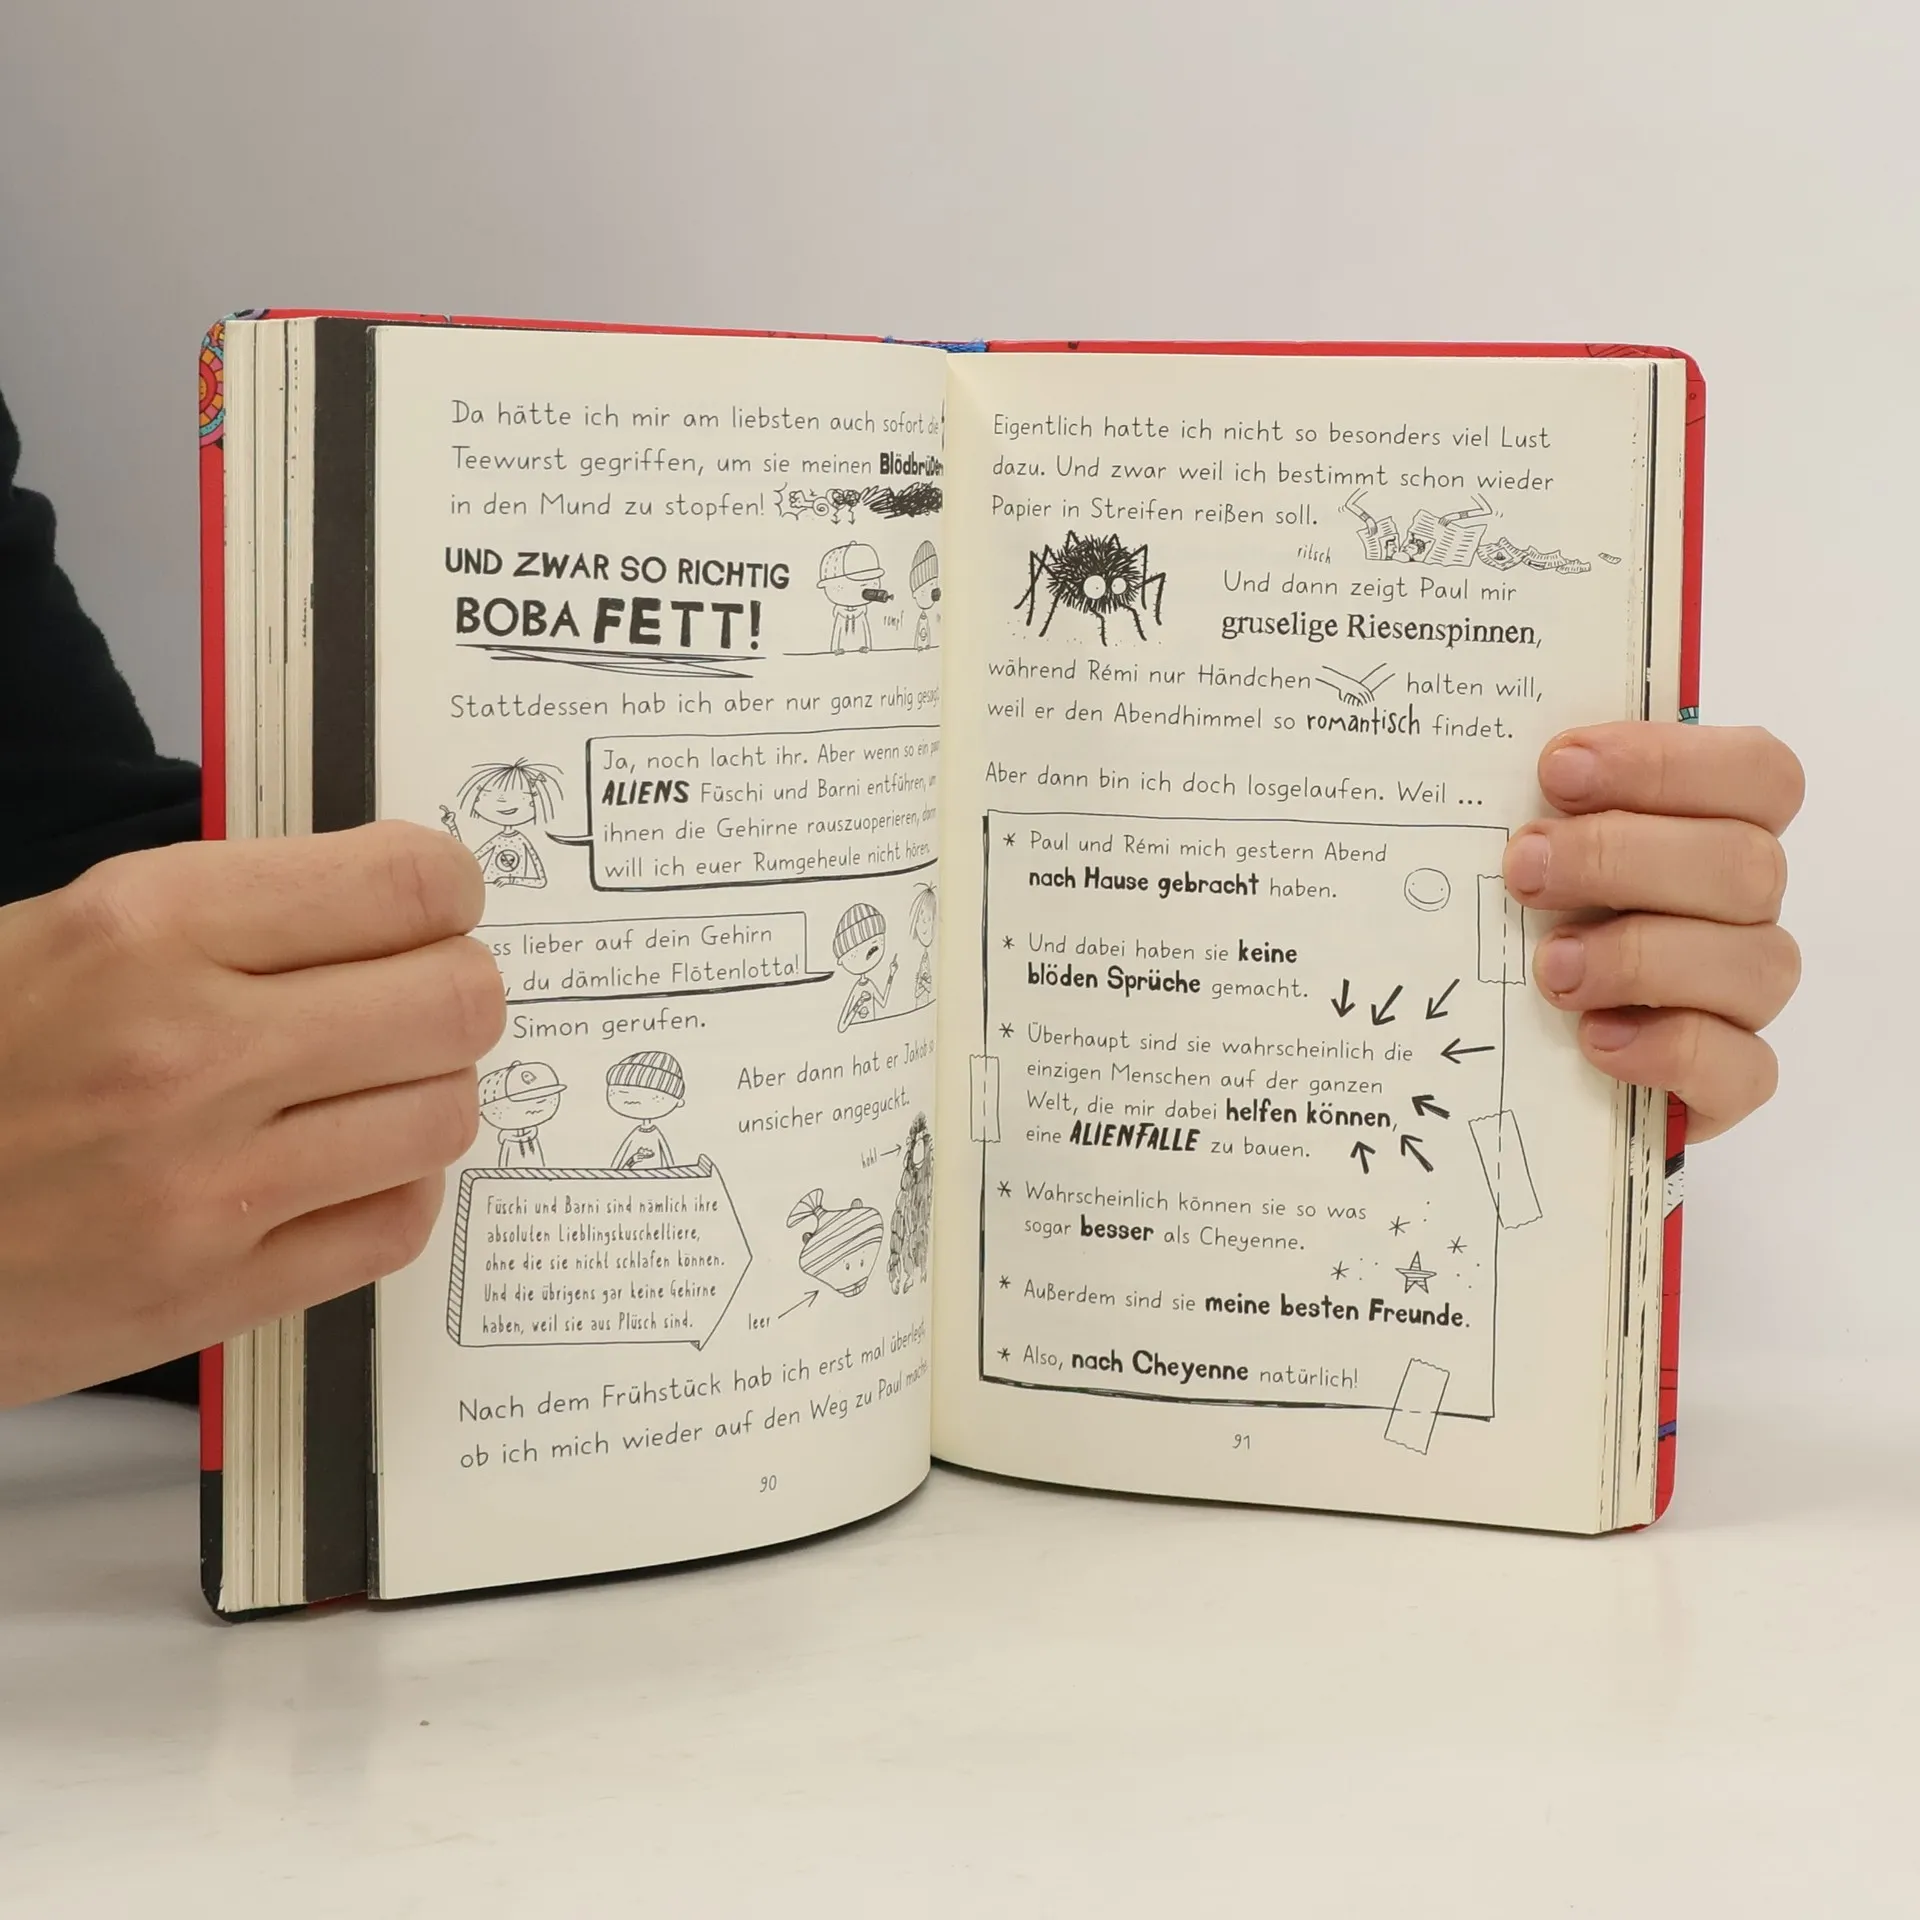 Da hätte ich mir am liebsten auch sofort die
Teewurst gegriffen, um sie meinen Blödbrüdern
in den Mund zu stopfen!
UND ZWAR SO RICHTIG
BOBA FETT!
Stattdessen hab ich aber nur ganz ruhig
Ja, noch lacht ihr. Aber wenn so ein
ALIENS Füschi und Barni entführen, um
ihnen die Gehirne rauszuoperieren, dann
will ich euer Rumgeheule nicht hören.
lieber auf dein Gehirn
, du dämliche Flötenlotta!
Simon gerufen.
Aber dann hat er Jakob so
unsicher angeguckt.
hohl
Füschi und Barni sind nämlich ihre
absoluten Lieblingskuscheltiere,
ohne die sie nicht schlafen können.
Und die übrigens gar keine Gehirne
haben, weil sie aus Plüsch sind.
leer
Nach dem Frühstück hab ich erst mal überlegt,
ob ich mich wieder auf den Weg zu Paul mache.
90
Eigentlich hatte ich nicht so besonders viel Lust
dazu. Und zwar weil ich bestimmt schon wieder
Papier in Streifen reißen soll.
ritsch
Und dann zeigt Paul mir
gruselige Riesenspinnen,
während Rémi nur Händchen halten will,
weil er den Abendhimmel so romantisch findet.
Aber dann bin ich doch losgelaufen. Weil ...
* Paul und Rémi mich gestern Abend
nach Hause gebracht haben.
* Und dabei haben sie keine
blöden Sprüche gemacht.
* Überhaupt sind sie wahrscheinlich die
einzigen Menschen auf der ganzen
Welt, die mir dabei helfen können,
eine ALIENFALLE zu bauen.
* Wahrscheinlich können sie so was
sogar besser als Cheyenne.
* Außerdem sind sie meine besten Freunde.
* Also, nach Cheyenne natürlich!
91